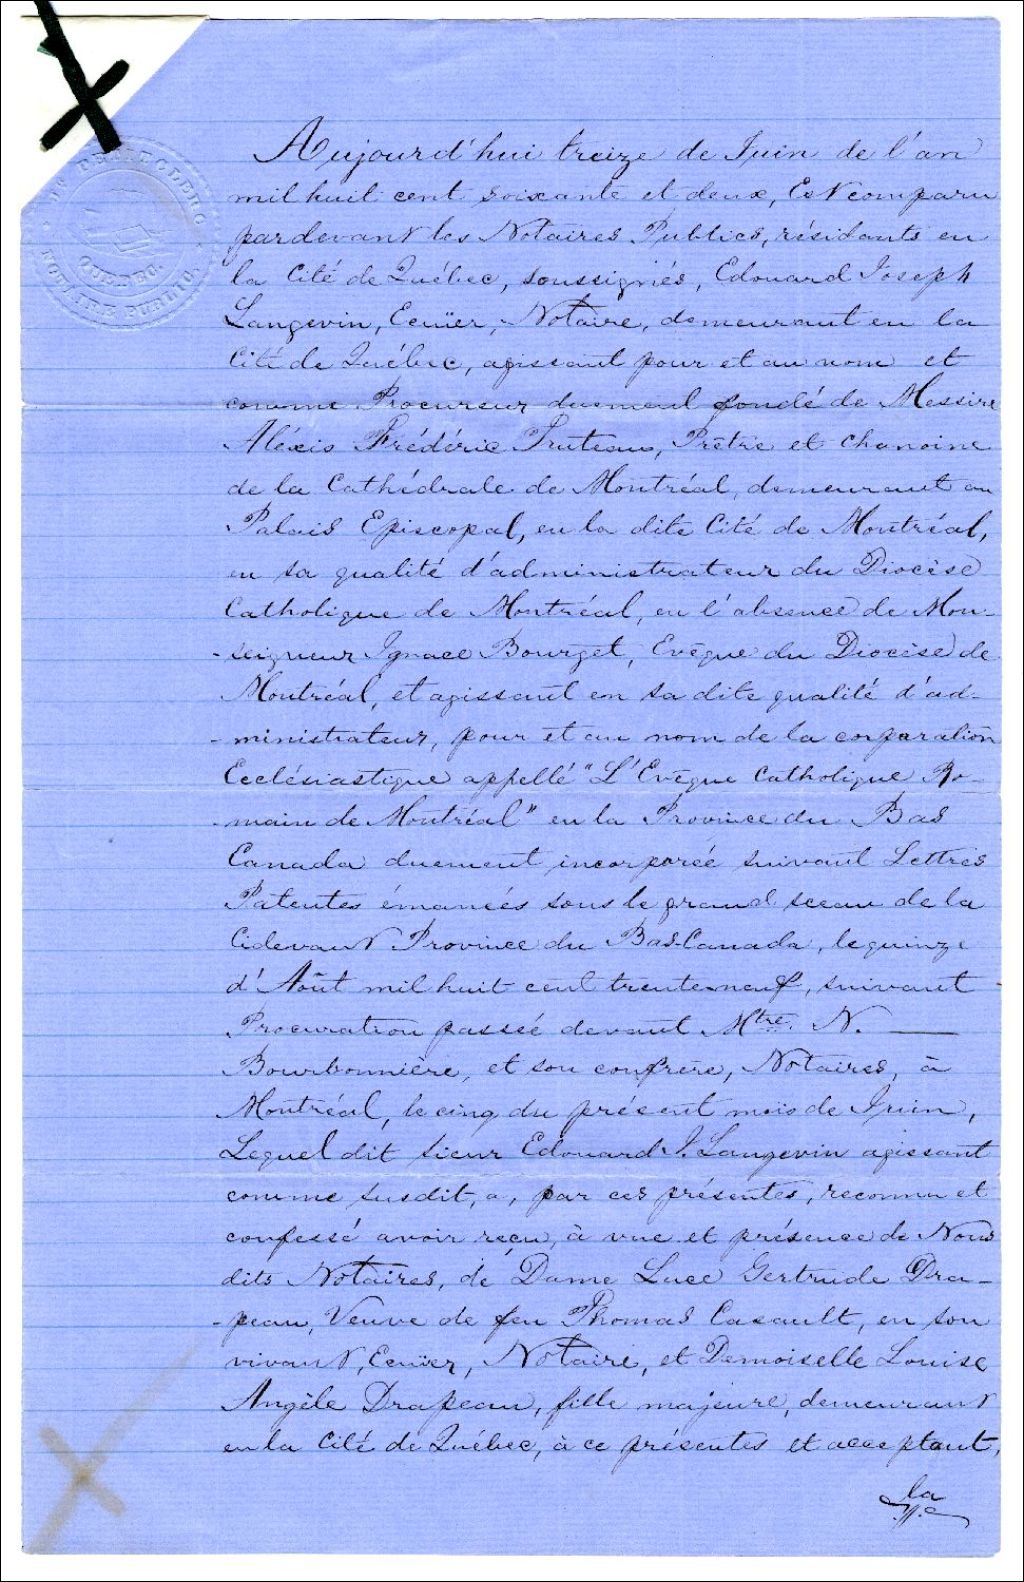 NOTAIRE PUBLIC.
QUEBEC.
Aujourd'hui treize de Juin de l'an
mil huit cent soixante et deux, Est comparu
pardevant les Notaires Publics, résidants en
la Cité de Québec, soussignés, Edouard Joseph
Langevin, Ecuïer, Notaire, demeurant en la
Cité de Québec, agissant pour et au nom et
comme Procureur duement fondé de Messire
Aléxis Frédéric Truteau, Prêtre et Chanoine
de la Cathédrale de Montréal, demeurant au
Palais Episcopal, en la dite Cité de Montréal,
en sa qualité d'administrateur du Diocèse
Catholique de Montréal, en l'absence de Mon-
-seigneur Ignace Bourget, Evêque du Diocèse de
Montréal, et agissant en sa dite qualité d'ad-
-ministrateur, pour et au nom de la corporation
Ecclésiastique appellé "L'Evêque Catholique Ro-
-main de Montréal" en la Province du Bas
Canada duement incorporée suivant Lettres
Patentes émanées sous le grand sceau de la
Cidevant Province du Bas-Canada, le quinze
d'Août mil huit cent trente neuf, suivant
Procuration passée devant Mtre. N. ——
Bourbonnière, et son confrère, Notaires, à
Montréal, le cinq du présent mois de Juin,
Lequel dit Sieur Edouard J. Langevin agissant
comme susdit, a, par ces présentes, reconnu et
confessé avoir reçu, à vue et présence de Nous
dits Notaires, de Dame Luce Gertrude Dra-
-peau, Veuve de feu Thomas Casault, en son
vivant, Ecuïer, Notaire, et Demoiselle Louise
Angèle Drapeau, fille majeure, demeurant
en la Cité de Québec, à ce présentes et acceptant,
la